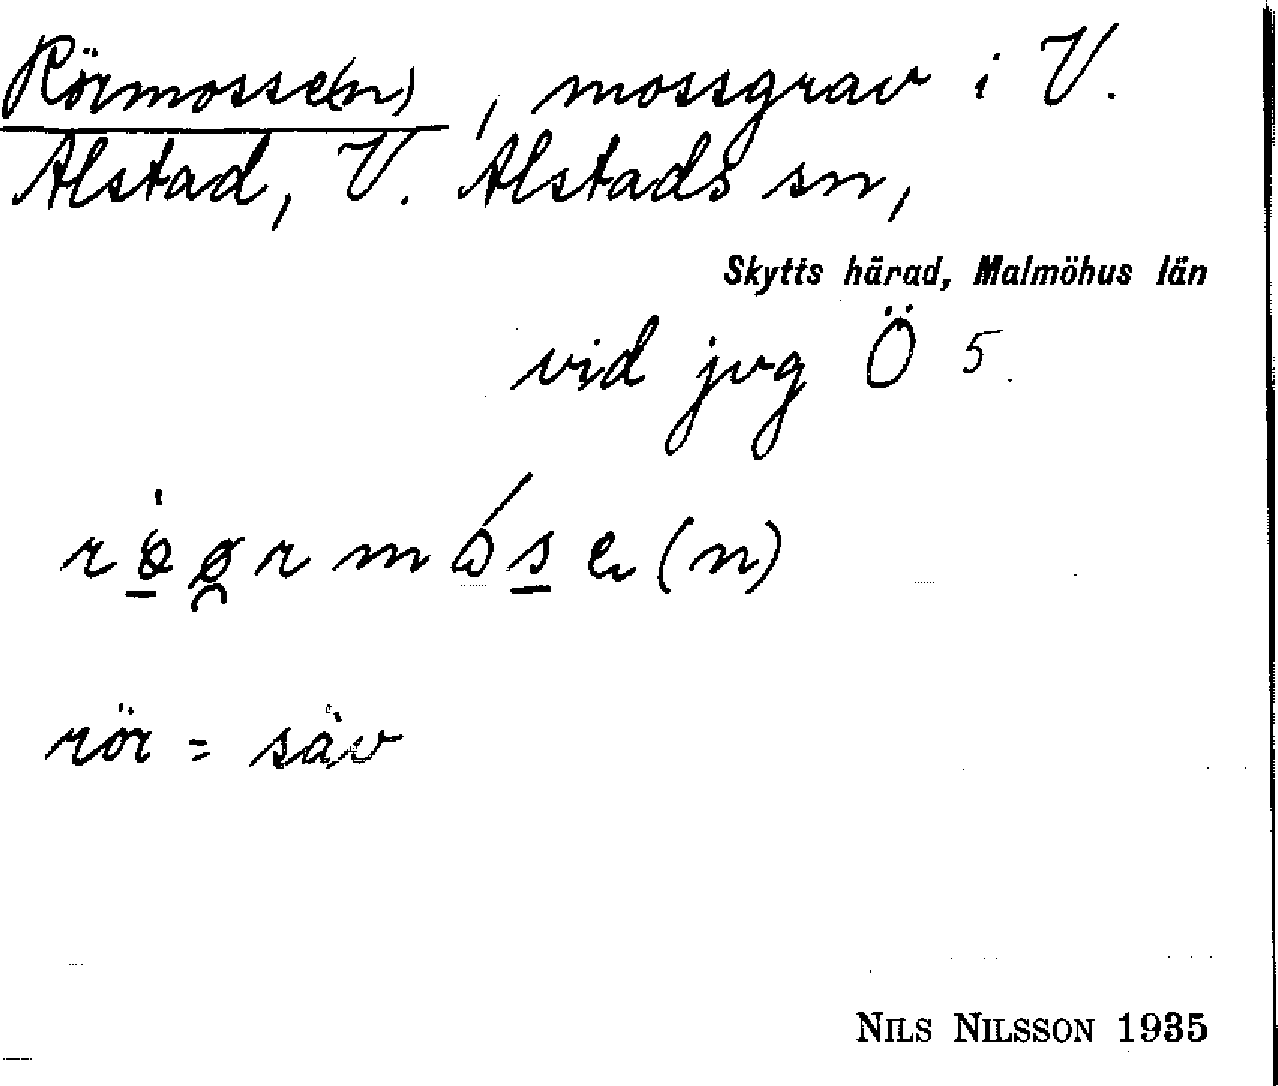 Rörmosse(n), mossgrav i V.
Alstad, V. Alstads sn,
Skytts härad, Malmöhus län
vid jvg Ö 5
rör = säv
NILS NILSSON 1935